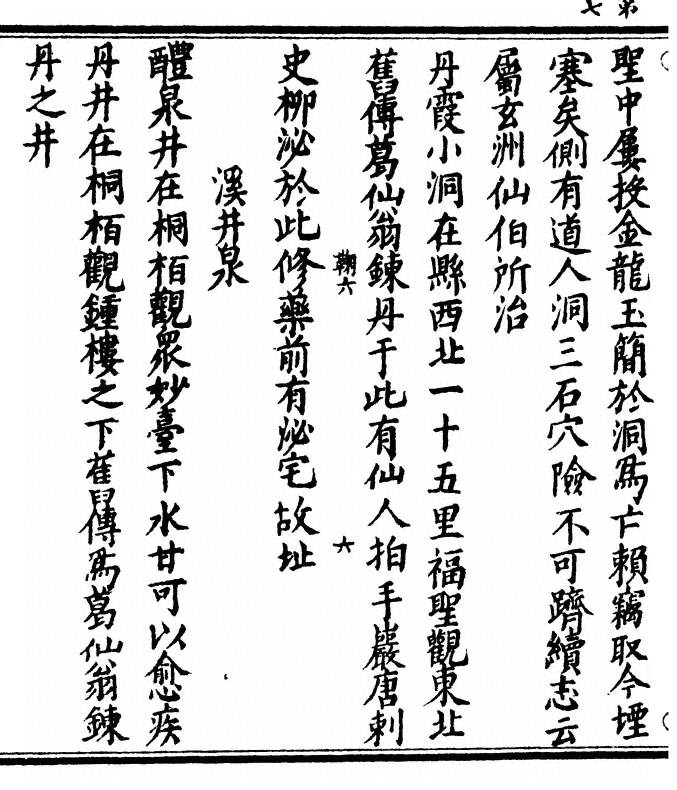 聖中屢投金龍玉簡於洞爲亡賴竊取今堙
塞矣側有道人洞三石穴險不可躋續志云
屬玄洲仙伯所治
丹霞小洞在縣西北一十五里福聖觀東北
舊傳葛仙翁鍊丹于此有仙人拍手巖唐刺
史柳泌於此修藥前有泌宅故址
溪井泉
醴泉井在桐栢觀衆妙臺下水甘可以愈疾
丹井在桐栢觀鍾樓之下舊傳爲葛仙翁鍊
丹之井